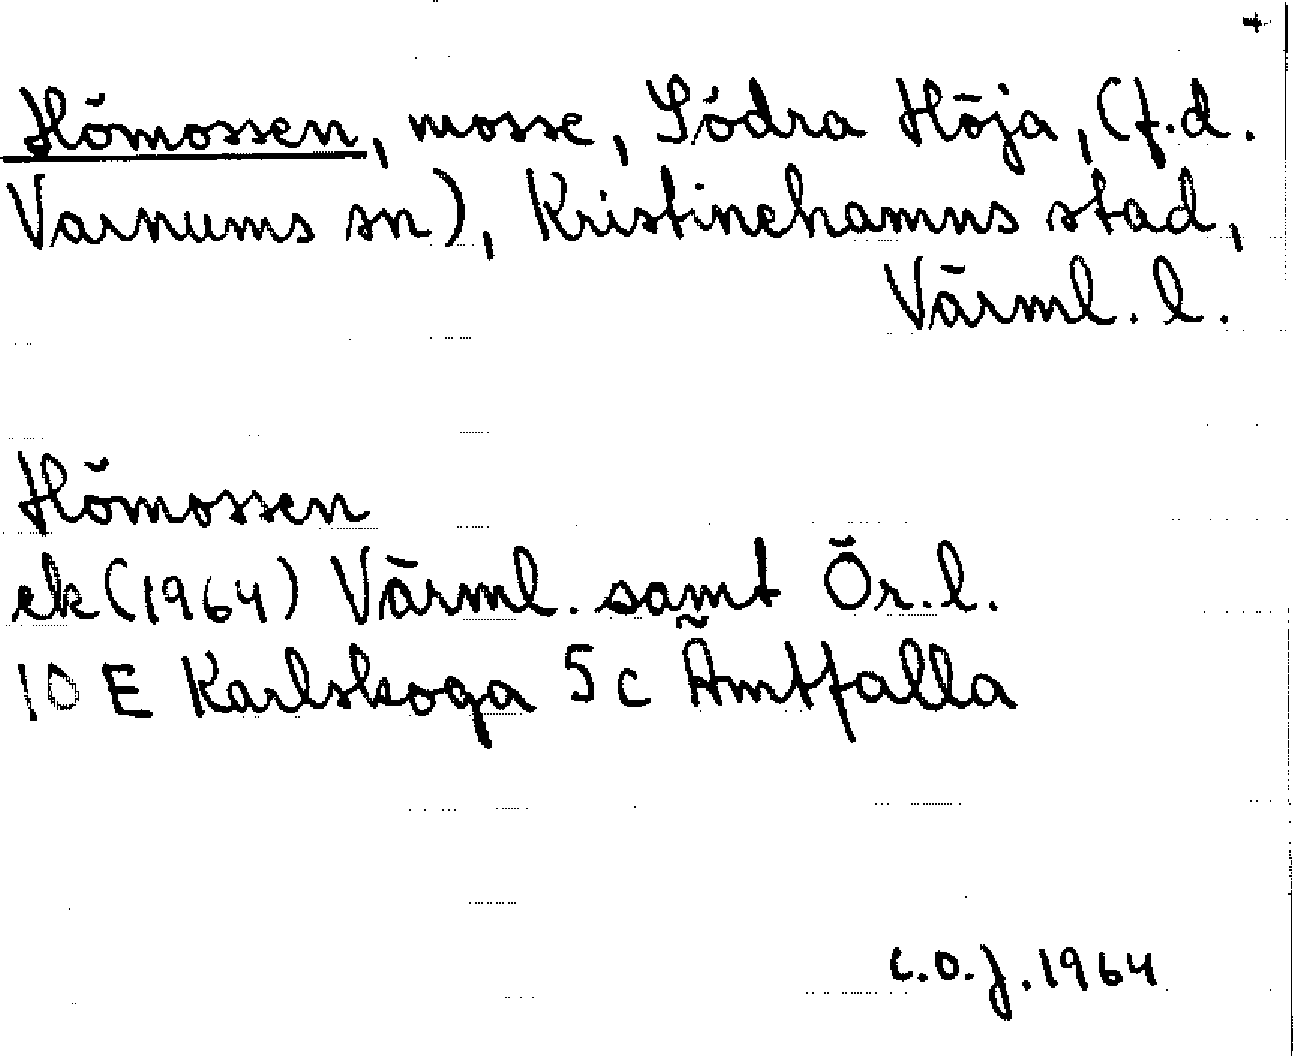 Hömossen, mosse, Södra Höja, (f.d.
Varnums sn), Kristinehamns stad,
Värml. l.
Hömossen
ek (1964) Värml. samt Ör. l.
10 E Karlskoga 5 c Ämtfalla
C.O.J. 1964